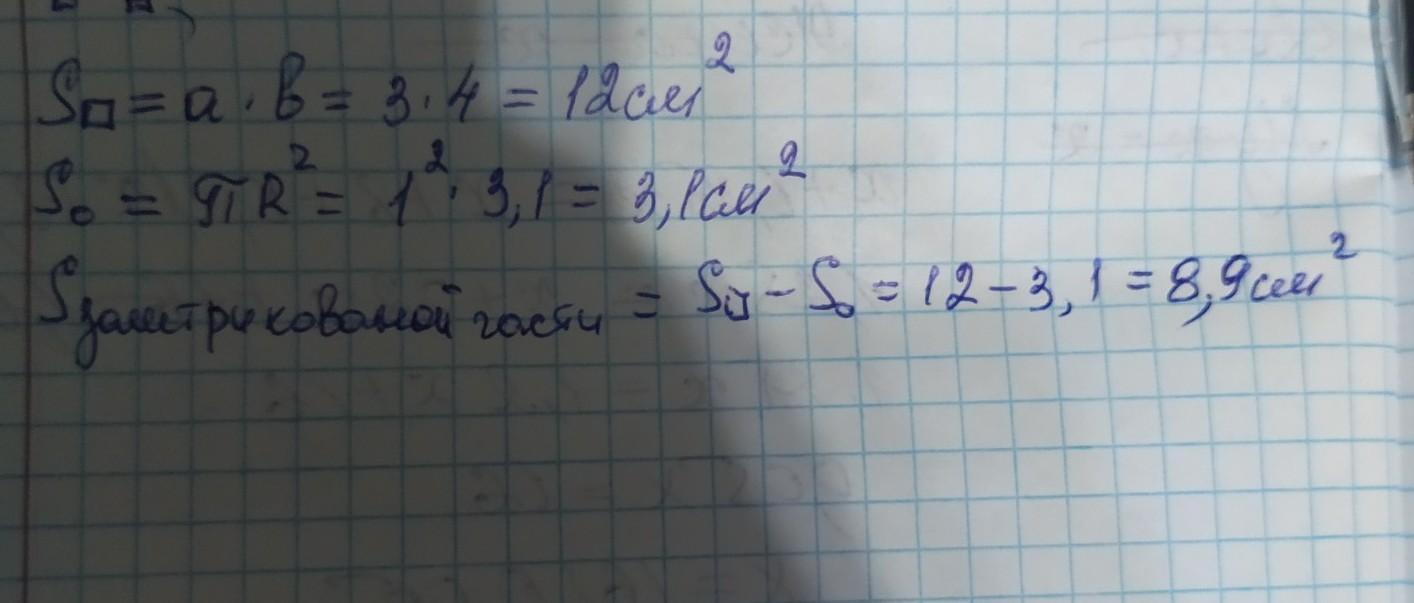 S□ = a · b = 3 · 4 = 12см²
S₀ = πR² = 1² · 3,1 = 3,1см²
Sзаштрикованой части = S□ - S₀ = 12 - 3,1 = 8,9см²